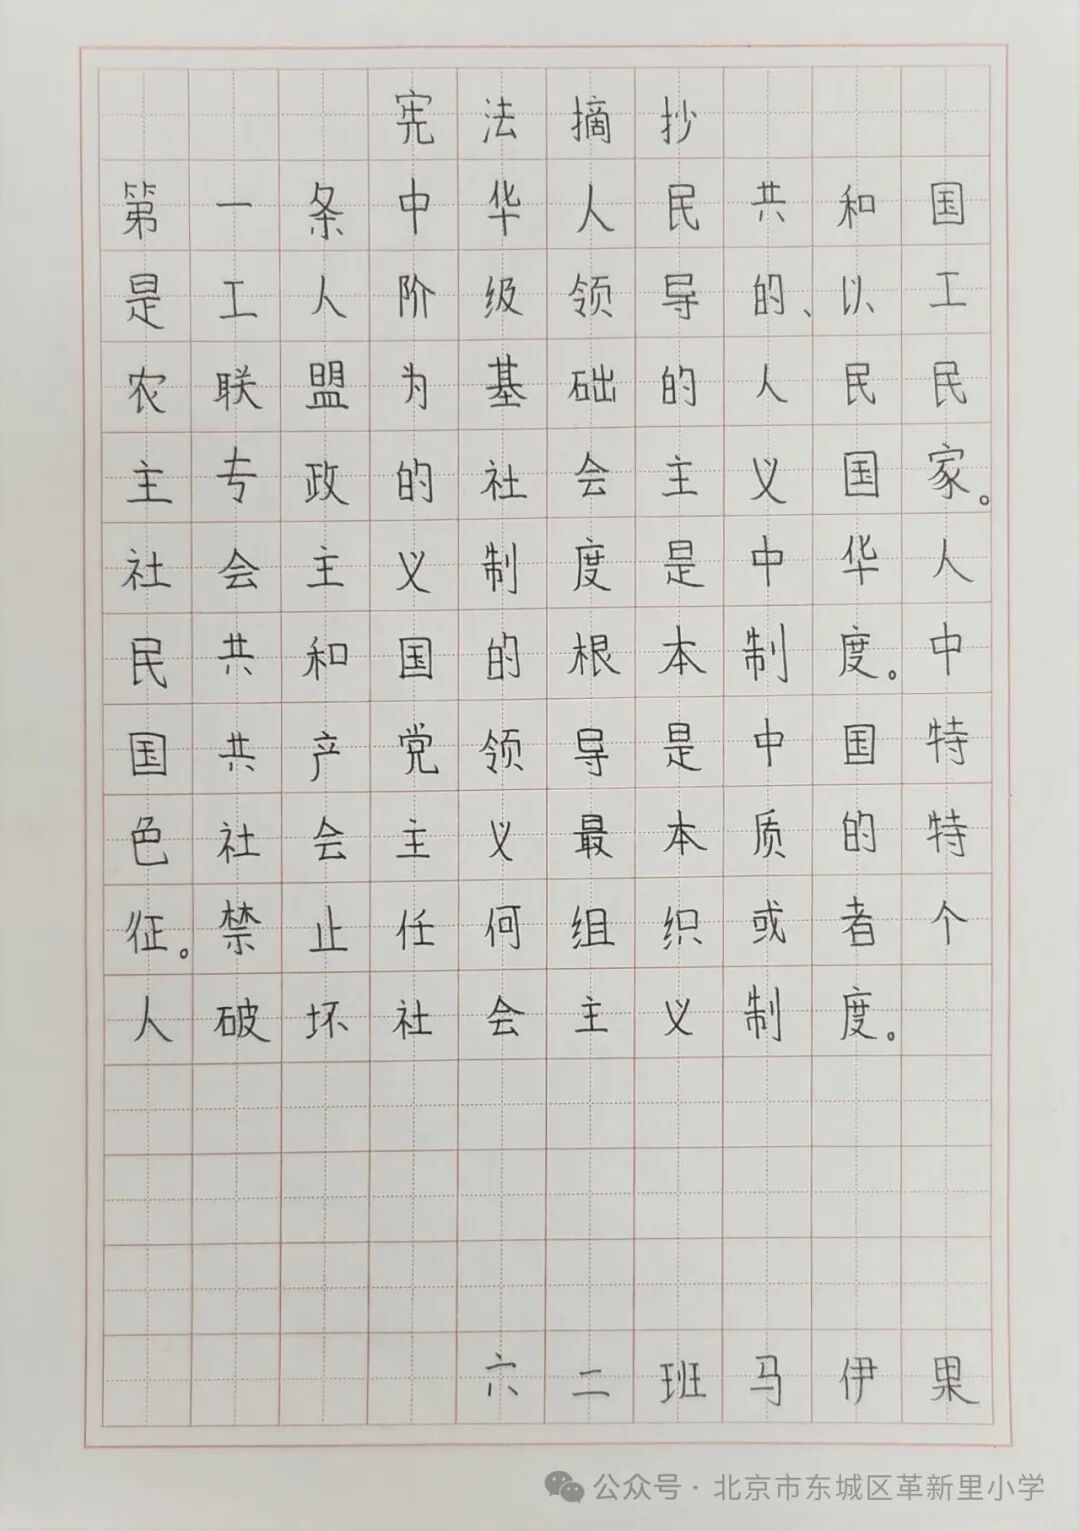 宪法摘抄
第一条中华人民共和国
是工人阶级领导的、以工
农联盟为基础的人民民
主专政的社会主义国家。
社会主义制度是中华人
民共和国的根本制度。中
国共产党领导是中国特
色社会主义最本质的特
征。禁止任何组织或者个
人破坏社会主义制度。
六二班马伊果
公众号·北京市东城区革新里小学